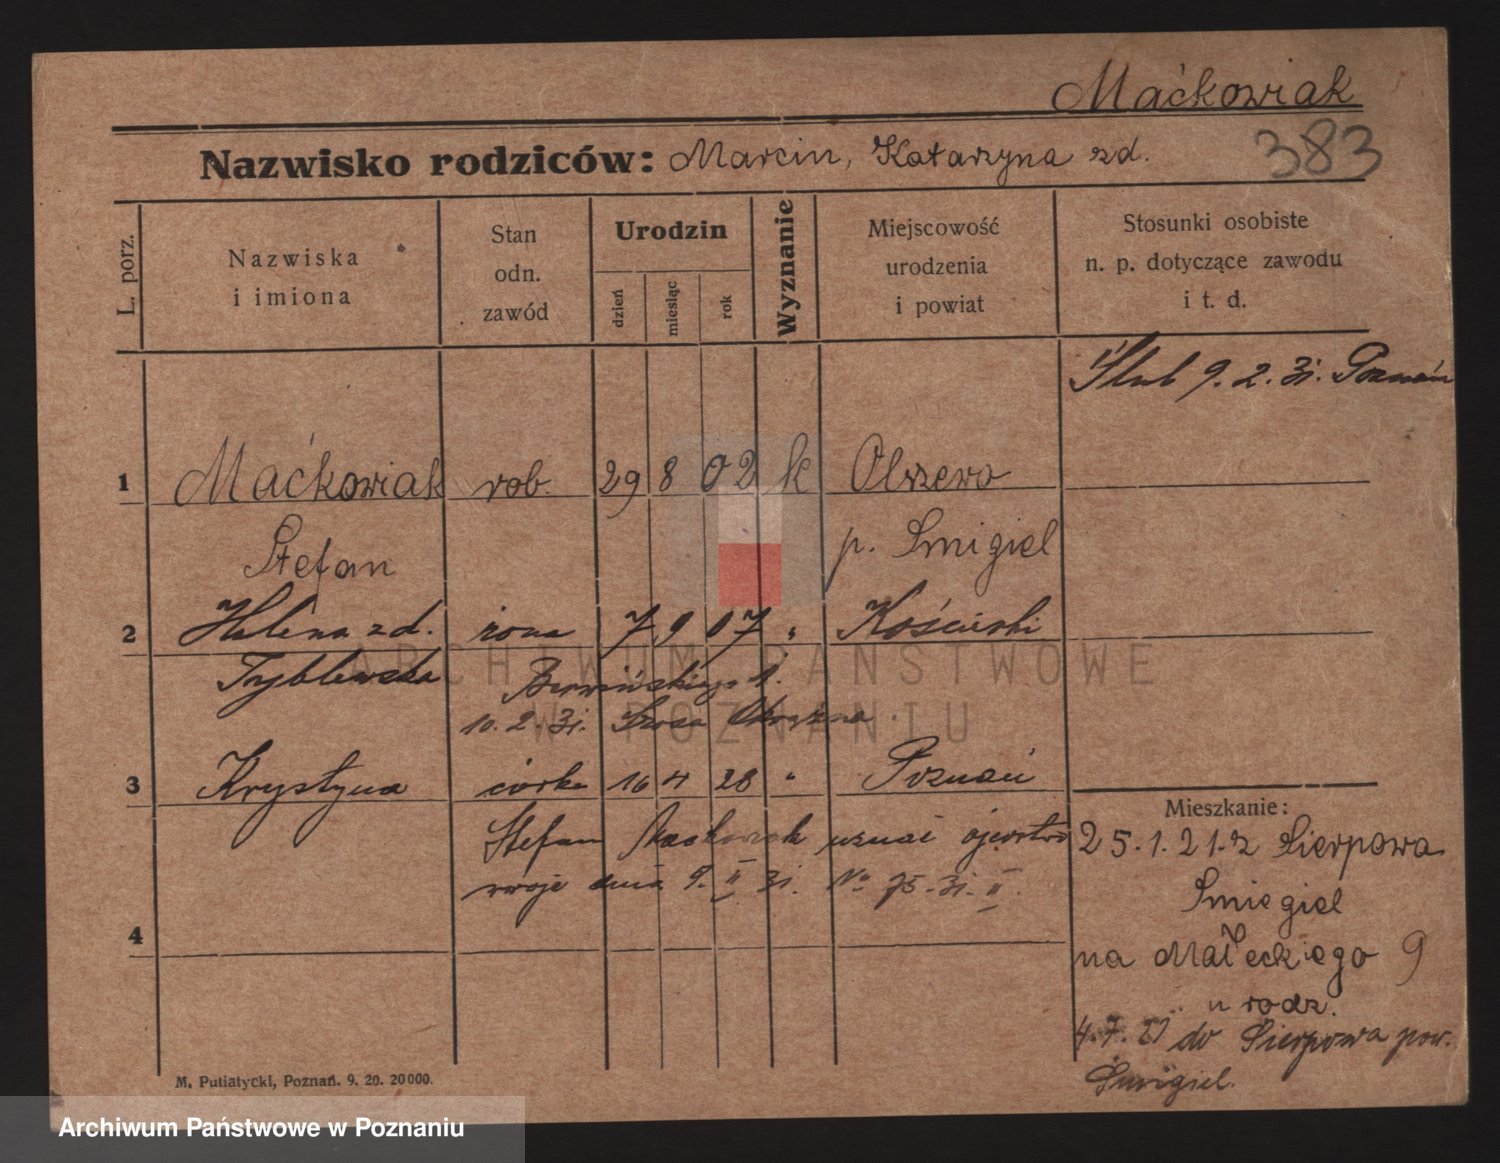 Maćkowiak
383
Nazwisko rodziców: Marcin, Katarzyna zd.
L. porz.
Nazwiska i imiona
Stan odn. zawód
Urodzin
dzień
miesiąc
rok
Wyznanie
Miejscowość urodzenia i powiat
Stosunki osobiste n. p. dotyczące zawodu i t. d.
Ślub 9. 2. 31. Poznań
1 Maćkowiak rob. 29 8 02 k
Stefan p. Smigiel
2 Helena zd. żona 7 9 07 " Kościański
10. 2. 31.
3 Krystyna córka 16 4 28 " Poznań
Mieszkanie:
Stefan Maćkowiak uznał ojcostwo
swoje dnia 9. II 31. No 75. 31. II.
4
25. 1. 21. z Sierpowa
Smiegiel
na Małeckiego 9
u rodz.
4. 7. 21 do Sierpowa pow.
Śmigiel.
M. Putiatycki, Poznań. 9. 20. 20000.
ARCHIWUM PAŃSTWOWE
W POZNANIU
Archiwum Państwowe w Poznaniu